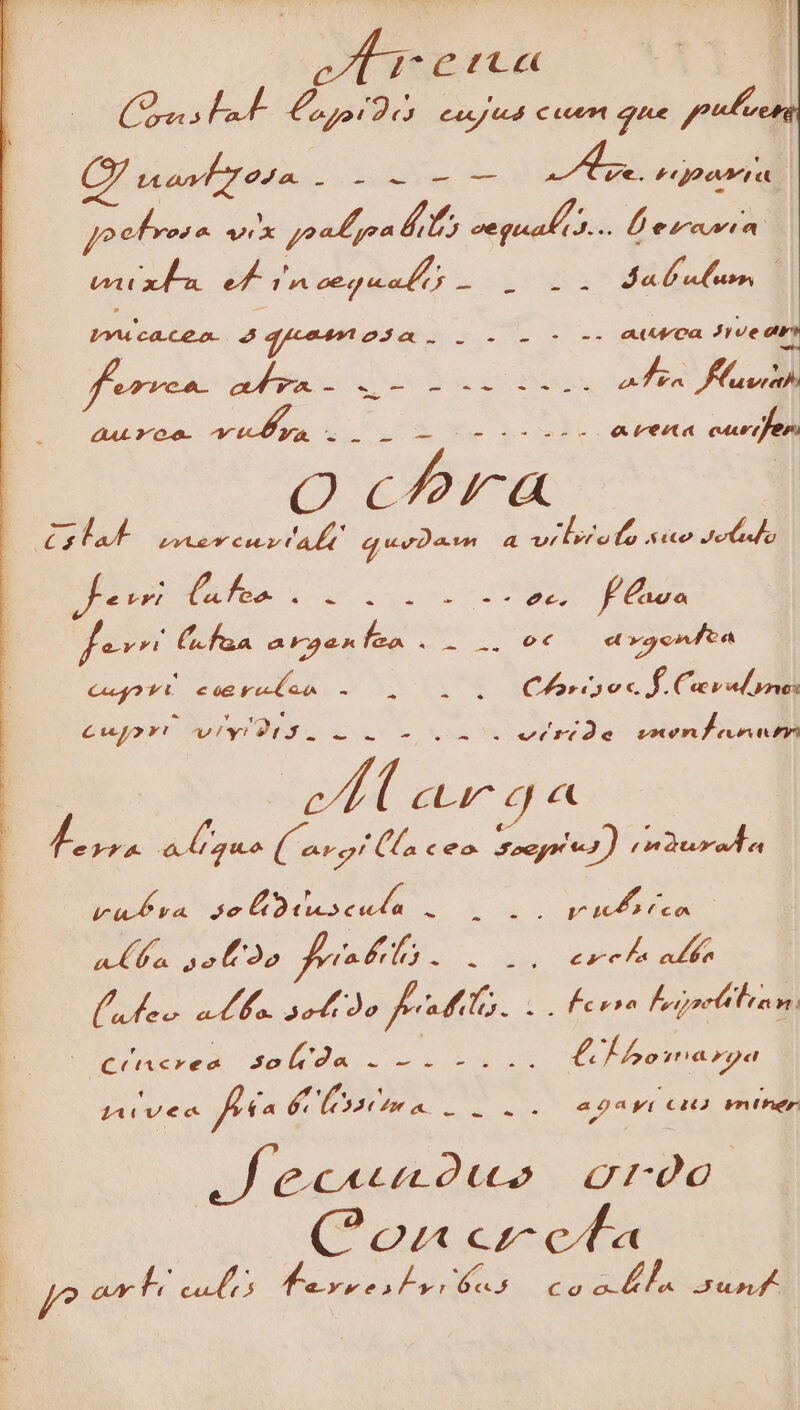 Arena
Constat Lapidis cujus cum que pulvere
Quartzosa . . . . Are. riparia
petrosa vix palpabilis aequalis... Geraria
mixta et inaequalis . . . . Sabulum
micacea squamosa . . . . . . aurea sive arg
ferrea atra . . . . . . . . atra fluviati
aurea rubra . . . . . . . . arena aurifer
Ochra
Estat mercuriali quodam a vitriolo suo soluto
ferri lutea . . . . . . . . oc. flava
ferri lutea argentea . . . . oc argentea
cupri coerulea . . . . Chrisoc. f. Coerul.
cupri viridis . . . . . . . viride montanum
Marga
terra aliqua (argillacea soepius) indurata
rubra solidiuscula . . . . . rubrica
alba solido friabilis . . . . creta alba
luteo alba solido friabilis. . . terra tripolitan
Cincrea solida . . . . . . . Lithomarga
nivea friabilissima . . . . . agaricus miner
Secundus ordo
Concreta
particulis terrestribus coalita sunt